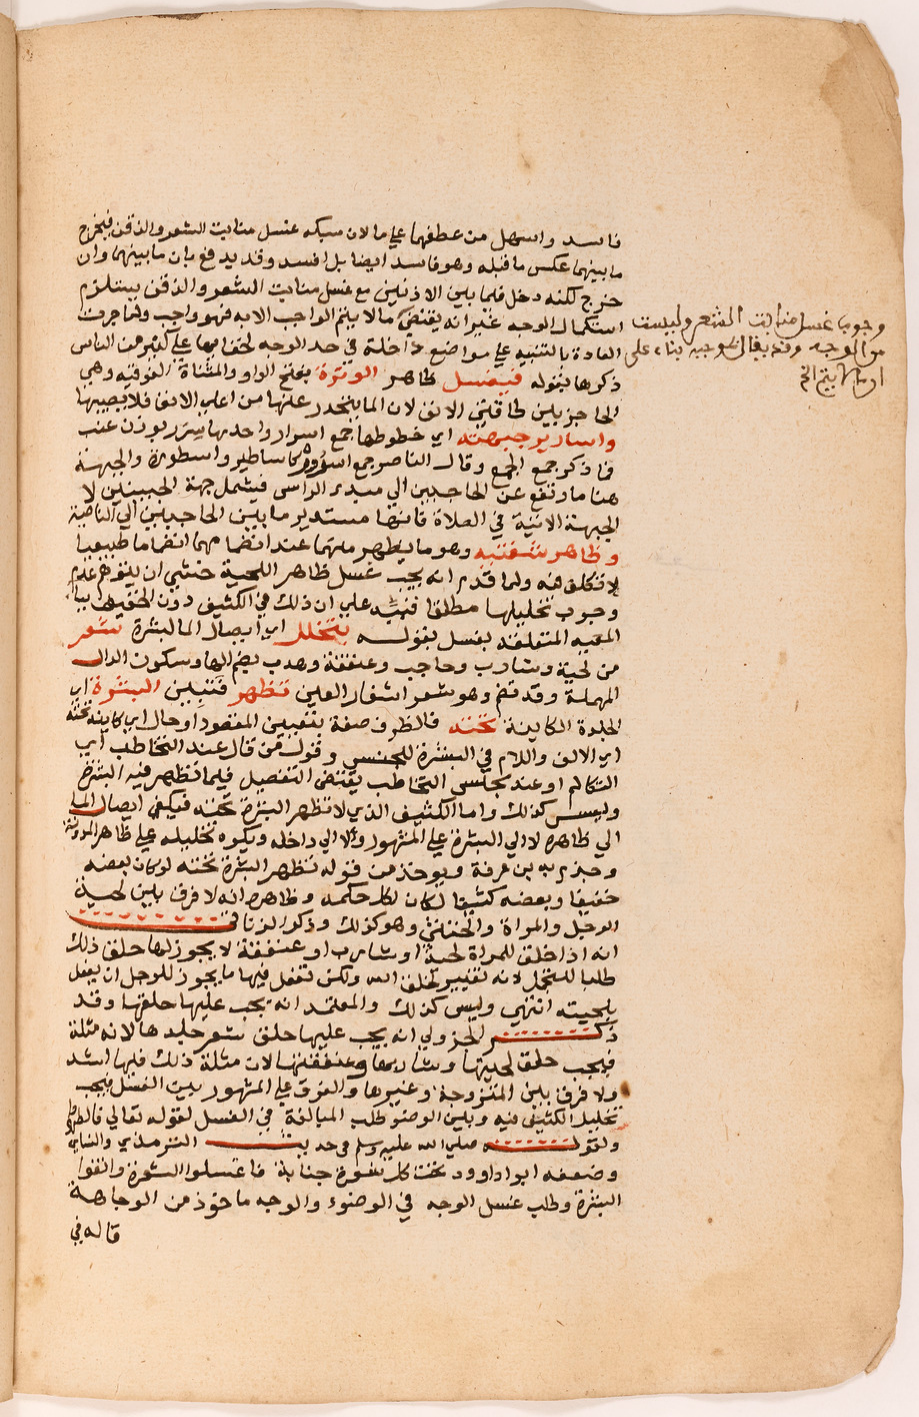 فاسد واسهل من عطفهما علي ما لان سبكه غسل منابت الشعر والذقن فيخرج
ما بينهما عكس ما قبله وهو فاسد ايضا بل افسد وقد يدفع بان ما بينهما وان
خرج لكنه دخل فيما بين الاذنين مع غسل منابت الشعر والذقن يستلزم
استكمال الوجه غير انه يقتضي ما لا يتم الواجب الا به فهو واجب ولما جرت
العادة بالتنبيه علي مواضع داخلة في حد الوجه لخفايها علي كثير من الناس
ذكرها بقوله فيغسل ظاهر الوترة بفتح الواو والمثناة الفوقية وهي
الحاجز بين طاقتي الانف لان الما ينحدر عنها من اعلي الانف فلا يصيبها
واسارير جبهته اي خطوطها جمع اسرار واحدها سرر بوزن عنب
فما ذكر جمع الجمع وقال الناصر جمع اسرورة كاساطير واسطورة والجبهة
هنا ما ارتفع عن الحاجبين الي مبدء الراس فيشمل جهة الجبينين لا
الجبهة الاتية في الصلاة فانها مستدير ما بين الحاجبين الي الناصية
وظاهر شفتيه وهو ما يظهر منهما عند انضمامهما انضماما طبيعيا
لا تكلف فيه ولما قدم انه يجب غسل ظاهر اللحية خشي ان يتوهم عدم
وجوب تخليلها مطلقا فنبه علي ان ذلك في الكثيف دون الخفيف بباء
المعية المتعلقة بغسل بقوله بتخلل اي ايصال الما لبشرة شعر
من لحية وشارب وحاجب وعنفقة وهدب بضم الها وسكون الدال
المهملة وقد تضم وهو شعر اشفار العين تظهر فتبين البشرة اي
الجلدة الكاينة تحته فالظرف صفة بتعيين المقصود او حال اي كاينة تحته
اي الالف واللام في البشرة للجنس وقول من قال عند التخاطب اي
التكالم او عند مجلس التخاطب يقتضي التفصيل فيما تظهر فيه البشرة
وليس كذلك واما الكثيف الذي لا تظهر البشرة تحته فيكفي ايصال الما
الي ظاهره لا الي البشرة علي المشهور ولا الي داخله ويكره تخليله علي ظاهر المدونة
بن عرفة ويوخذ من قوله تظهر البشرة تحته لو كان بعضه
خفيفا وبعضه كثيفا لكان لكل حكمه وظاهره انه لا فرق بين لحية
الرجل والمراة والخنثي وهو كذلك وذكر الزناتي
انه اذا خلق للمراة لحية او شارب او عنفقة لا يجوز لها حلق ذلك
طلبا للتجمل لانه تغيير لخلق الله ولكن تفعل فيها ما يجوز للرجل ان يفعل
بلحيته انتهي وليس كذلك والمعتمد انه يجب عليها حلقها وقد
ذكر الجزولي انه يجب عليها حلق شعر جلدها لانه مثلة
فيجب حلق لحيتها وشاربها وعنفقتها لان مثلة ذلك فيها اشد
ولا فرق بين المتزوجة وغيرها والفرق علي المشهور بين الغسل فيجب
تخليل الكثيف فيه وبين الوضو طلب المبالغة في الغسل لقوله تعالي فاطهروا
ولقوله صلي الله عليه وسلم في حديث الترمذي والنساي
وضعفه ابو داوود تحت كل شعرة جنابة فاغسلوا الشعر وانقوا
البشرة وطلب غسل الوجه في الوضوء والوجه ماخوذ من الوجاهة
قاله في
وجوب غسل منابت الشعر وليست
من الوجه وقد يقال بناء علي